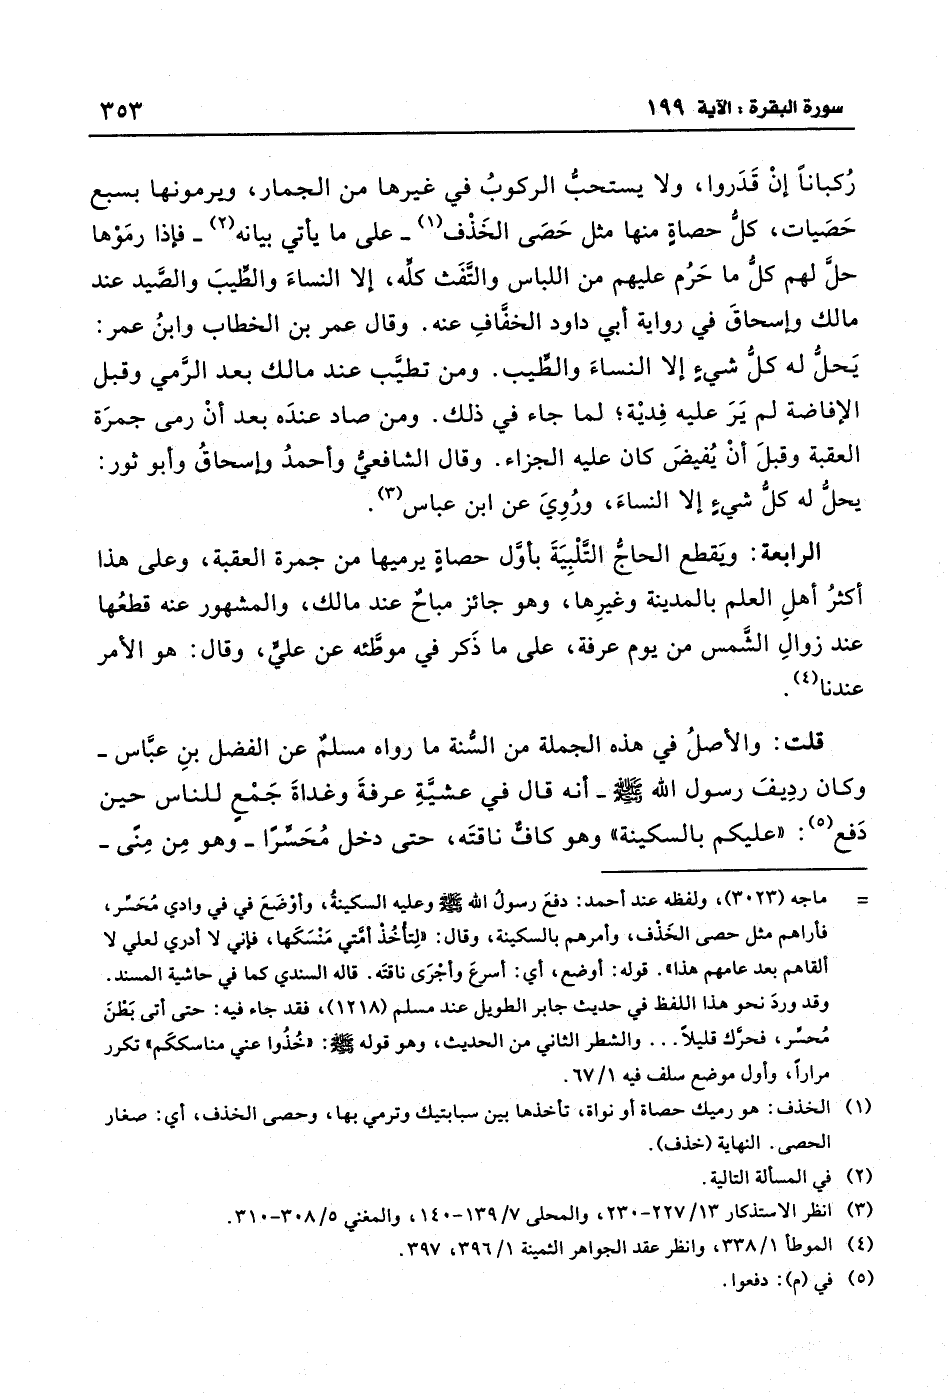 سورة البقرة : الآية ١٩٩
٣٥٣
رُكباناً إنْ قَدَروا، ولا يستحبُّ الركوبُ في غيرها من الجمار، ويرمونها بسبع
حَصَيات، كلُّ حصاةٍ منها مثل حَصَى الخَذْف(١) ـ على ما يأتي بيانه(٢) ـ فإذا رمَوْها
حلَّ لهم كلُّ ما حَرُم عليهم من اللباس والتَّفَث كلِّه، إلا النساءَ والطِّيبَ والصَّيد عند
مالك وإسحاقَ في رواية أبي داود الخفَّافِ عنه. وقال عمر بن الخطاب وابنُ عمر:
يَحلُّ له كلُّ شيءٍ إلا النساءَ والطِّيب. ومن تطيَّب عند مالك بعد الرَّمي وقبل
الإفاضة لم يَرَ عليه فِديْة؛ لما جاء في ذلك. ومن صاد عندَه بعد أنْ رمى جمرَة
العقبة وقبلَ أنْ يُفيضَ كان عليه الجزاء. وقال الشافعيُّ وأحمدُ وإسحاقُ وأبو ثور:
يحلُّ له كلُّ شيءٍ إلا النساءَ، ورُوِيَ عن ابن عباس(٣).
الرابعة: ويَقطع الحاجُّ التَّلْبِيَةَ بأوَّل حصاةٍ يرميها من جمرة العقبة، وعلى هذا
أكثرُ أهلِ العلم بالمدينة وغيرِها، وهو جائز مباحٌ عند مالك، والمشهور عنه قطعُها
عند زوالِ الشَّمس من يوم عرفة، على ما ذَكر في موطَّئه عن عليٍّ، وقال: هو الأمر
عندنا(٤).
قلت: والأصلُ في هذه الجملة من السُّنة ما رواه مسلمٌ عن الفضل بنِ عبَّاس ـ
وكان ردِيفَ رسول الله ﷺ ـ أنه قال في عشيَّةِ عرفةَ وغداةَ جَمْعٍ للناس حين
دَفع(٥): «عليكم بالسكينة» وهو كافٌّ ناقتَه، حتى دخل مُحَسِّرًا ـ وهو مِن مِنًى ـ
= ماجه (٣٠٢٣)، ولفظه عند أحمد: دفعَ رسولُ الله ﷺ وعليه السكينةُ، وأوْضَعَ في في وادي مُحَسِّر،
فأراهم مثل حصى الخَذْف، وأمرهم بالسكينة، وقال: «لِتأخُذْ أمَّتي مَنْسَكَها، فإني لا أدري لعلي لا
ألقاهم بعد عامهم هذا». قوله: أوضع، أي: أسرعَ وأجْرَى ناقتَه. قاله السندي كما في حاشية المسند.
وقد وردَ نحو هذا اللفظ في حديث جابر الطويل عند مسلم (١٢١٨)، فقد جاء فيه: حتى أتى بَطْنَ
مُحسِّر، فحرَّك قليلاً... والشطر الثاني من الحديث، وهو قوله ﷺ: «خُذُوا عني مناسككم» تكرر
مراراً، وأول موضع سلف فيه ١/ ٦٧.
(١) الخذف: هو رميك حصاة أو نواة، تأخذها بين سبابتيك وترمي بها، وحصى الخذف، أي: صغار
الحصى. النهاية (خذف).
(٢) في المسألة التالية.
(٣) انظر الاستذكار ١٣/ ٢٢٧-٢٣٠، والمحلى ٧/ ١٣٩-١٤٠، والمغني ٥/ ٣٠٨-٣١٠.
(٤) الموطأ ١/ ٣٣٨، وانظر عقد الجواهر الثمينة ١/ ٣٩٦، ٣٩٧.
(٥) في (م): دفعوا.